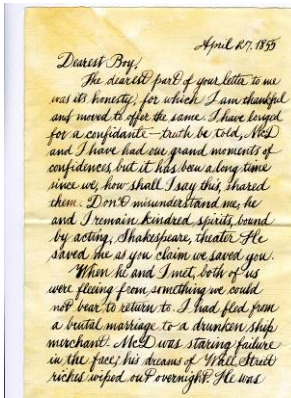 April 27, 1855
Dearest Boy,
The dearest part of your letter to me
was its honesty, for which I am thankful
and moved to offer the same. I have longed
for a confidante – truth be told, McD
and I have had our grand moments of
confidences, but it has been a long time
since we, how shall I say this, shared
them. Don't misunderstand me, he
and I remain kindred spirits, bound
by acting, Shakespeare, theater. He
saved me as you claim we saved you.
When he and I met, both of us
were fleeing from something we could
not bear to return to. I had fled from
a brutal marriage to a drunken ship
merchant. McD was staring failure
in the face, his dreams of Wall Street
riches wiped out overnight. He was